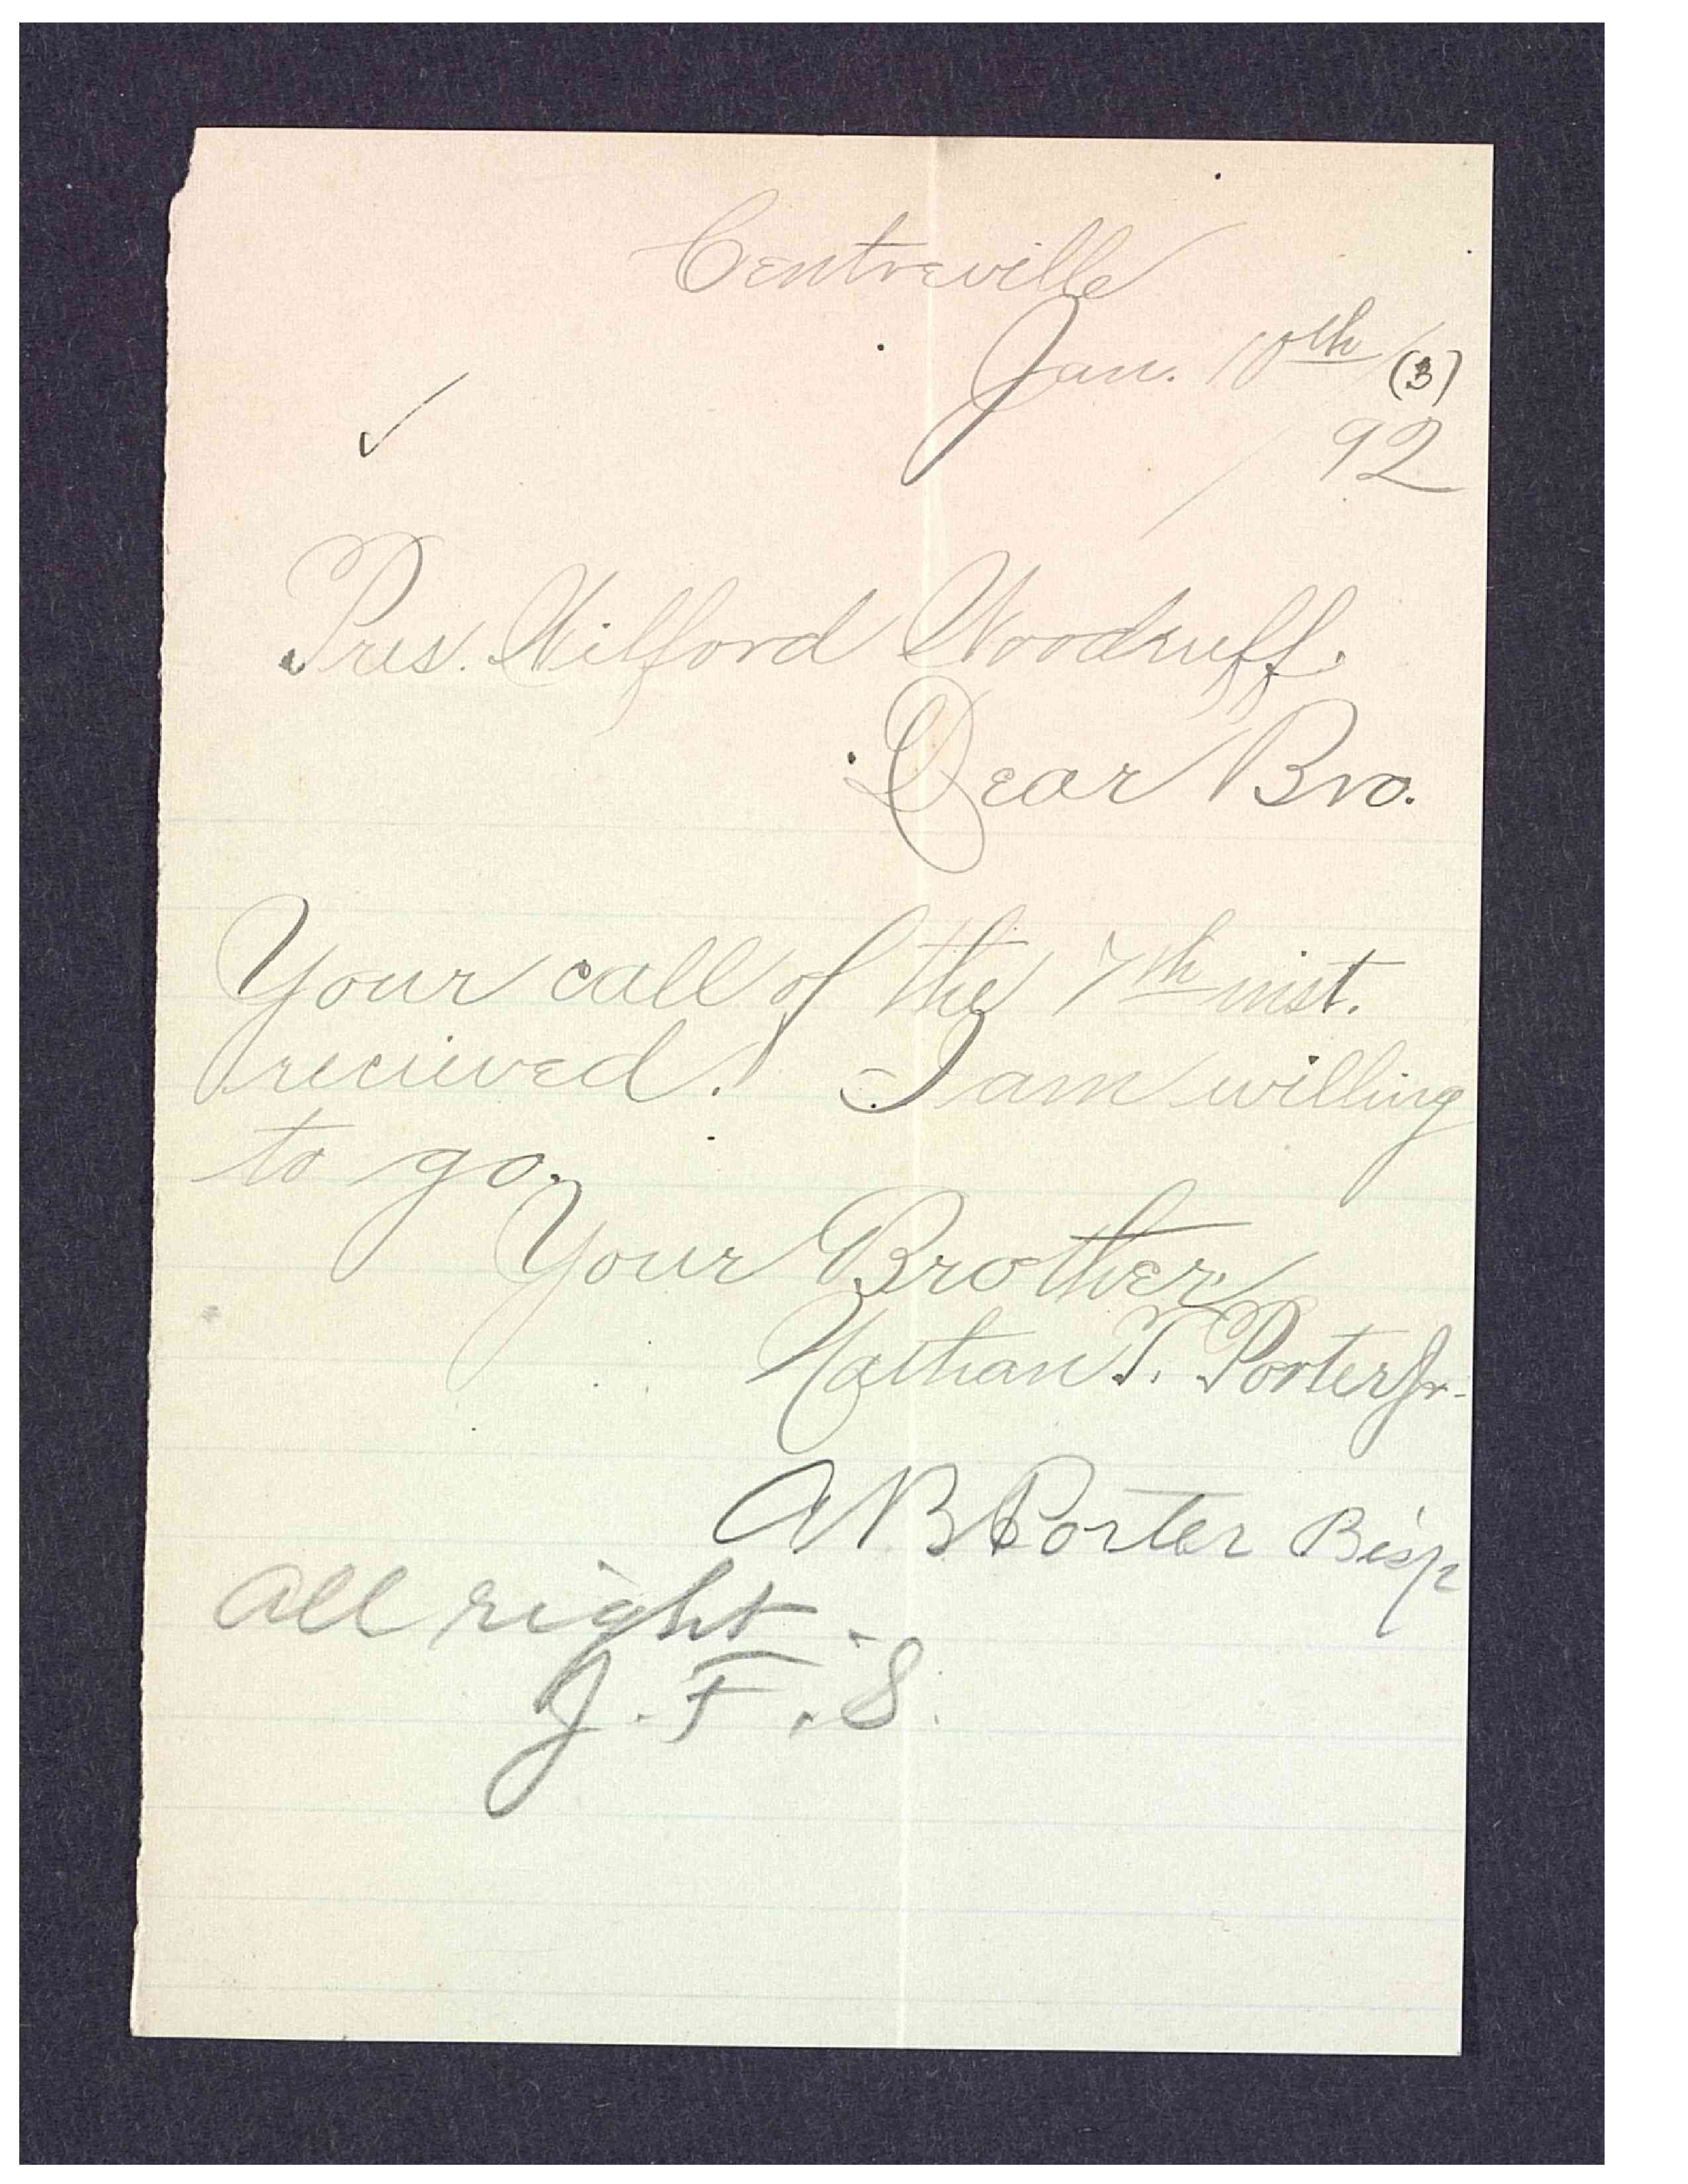 Centreville
Jan. 10th/ (3)
92
✓
Pres. Wilford Woodruff.
Dear Bro.
Your call of the 7th inst.
recieved. I am willing
to go.
Your Brother
Nathan T. Porter Jr.
A B Porter Bisp
all right -
J. F. S.